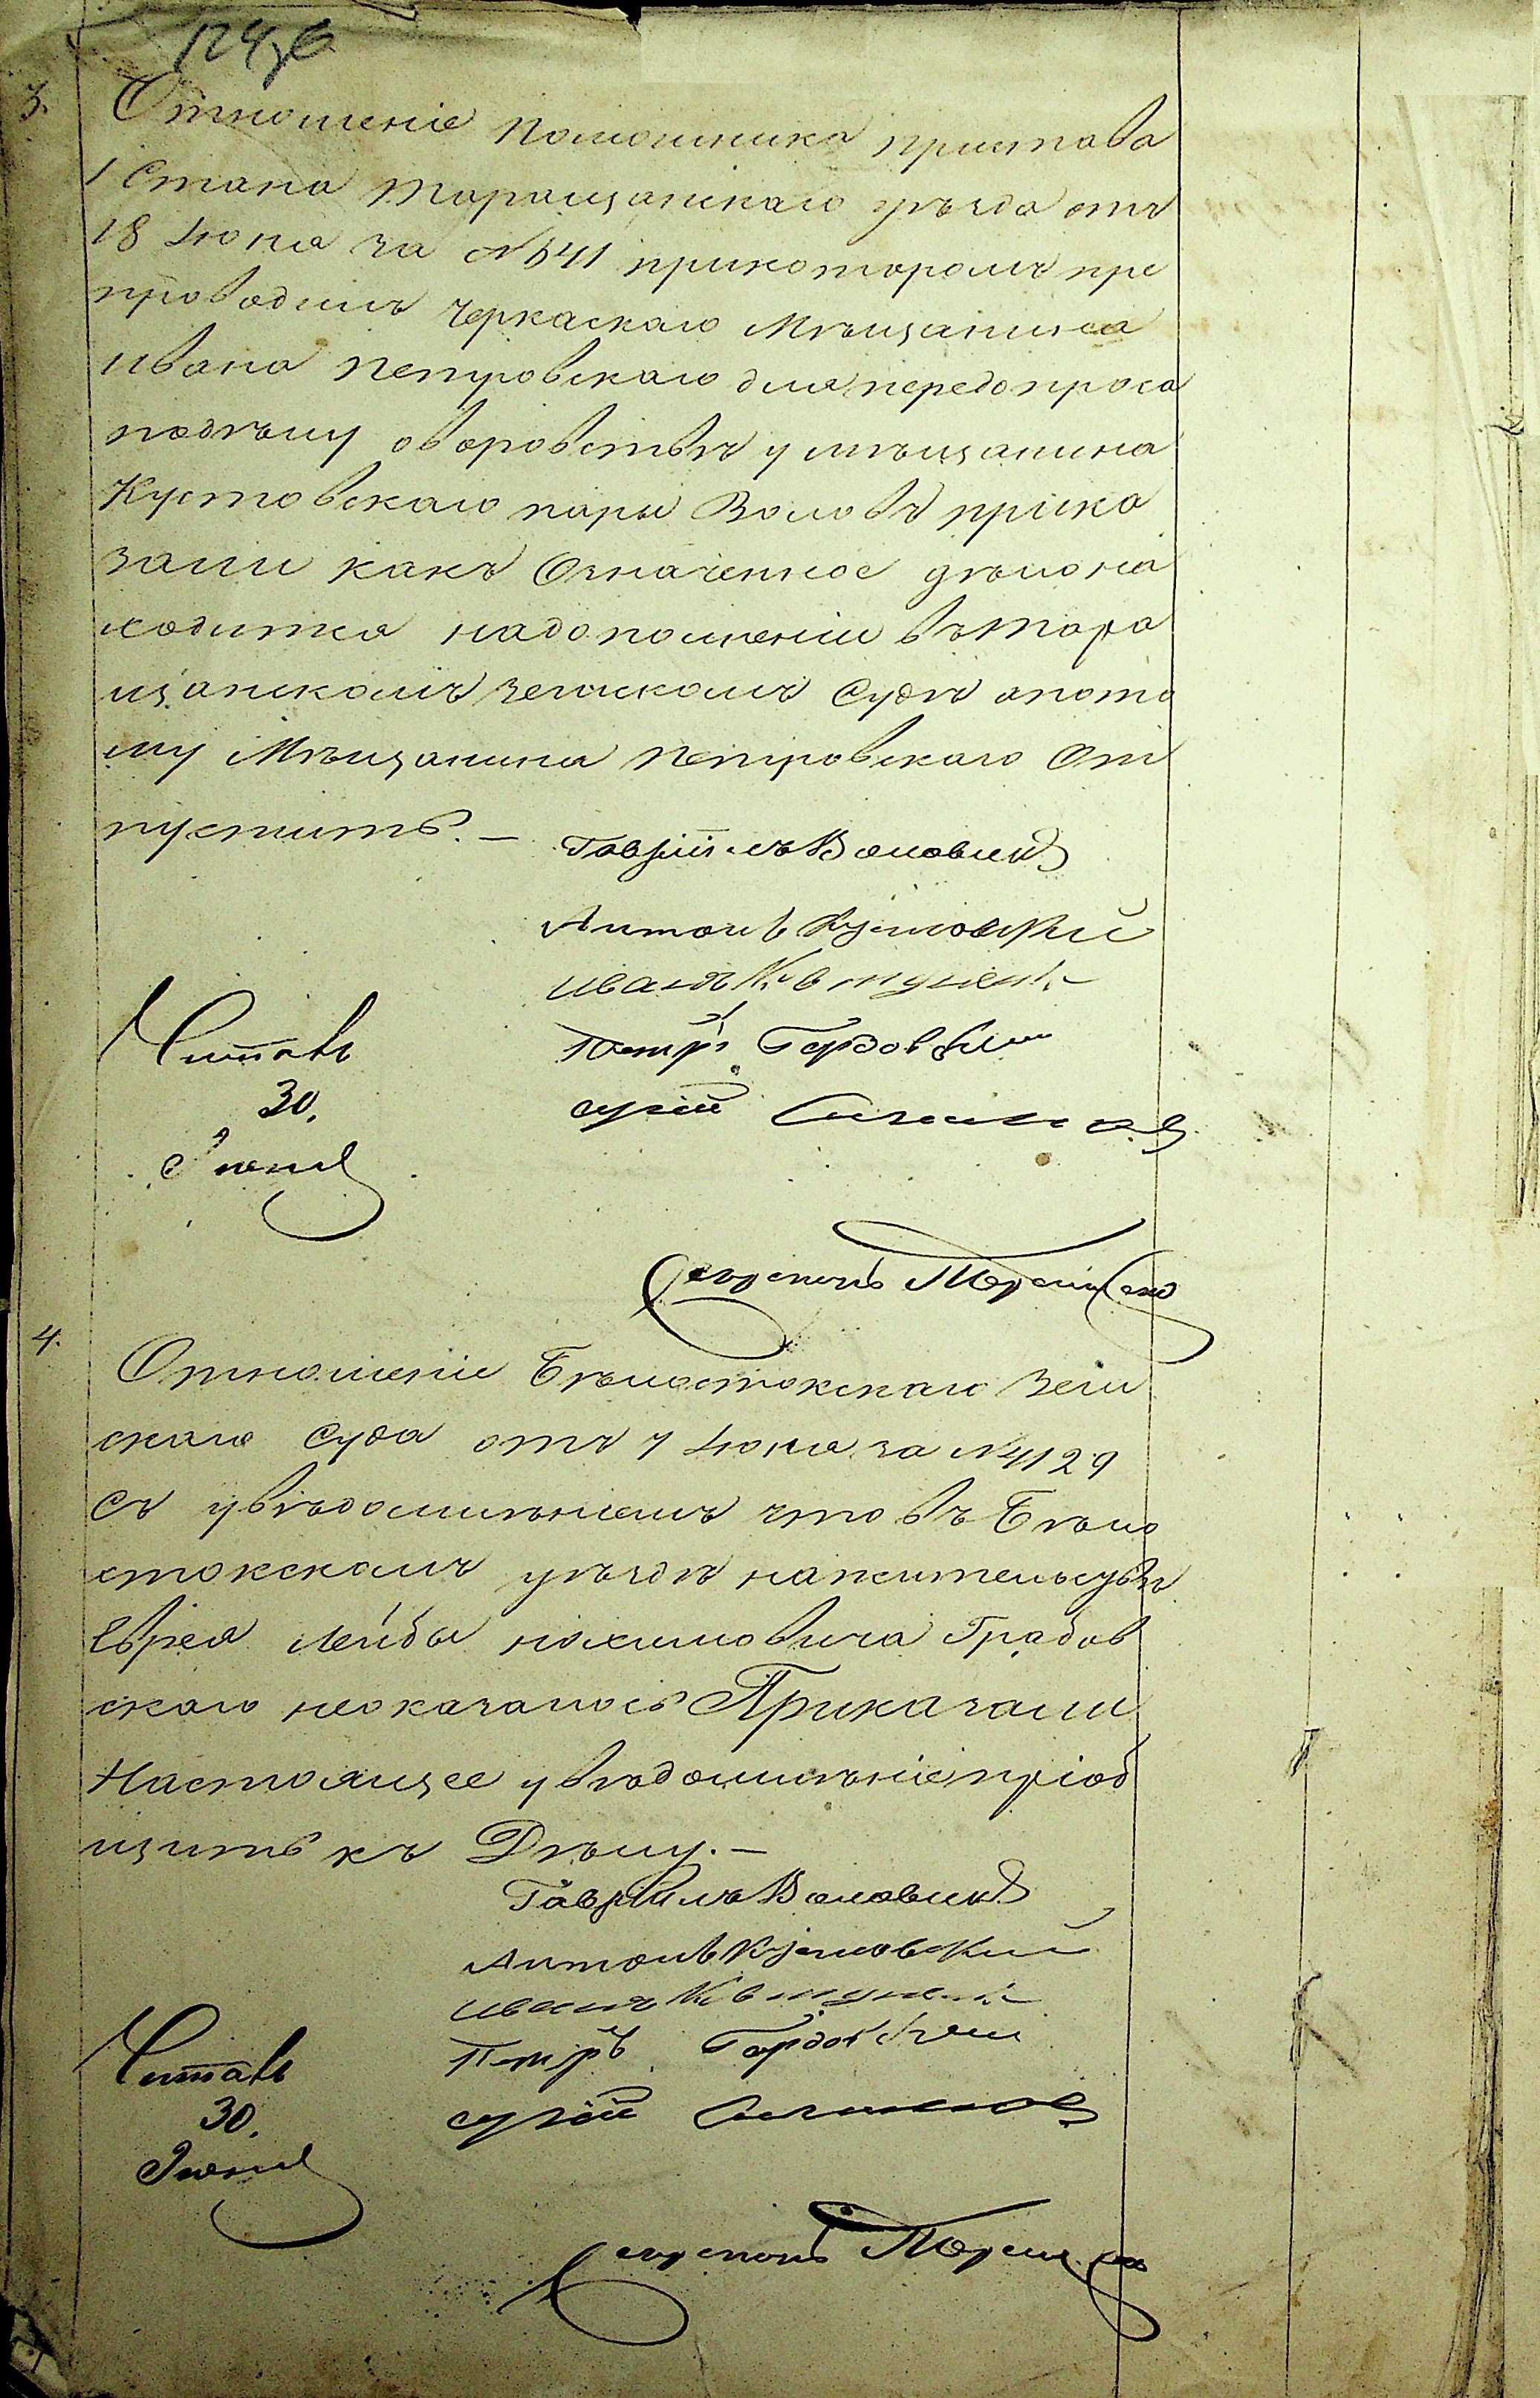 3.
Отношеніе помошника пристава
1 Стана Таращанскаго уѣзда отъ
18 Іюня за № 541 прикоторомъ пре
проводилъ Черкаскаго Мѣщанина
Ивана Петровскаго для передопроса
подѣлу оворовствѣ у мѣщанина
Кустовскаго пары Воловъ пріка
зали какъ Означенное дѣло на
ходится надополненіи въ Тара
щанскомъ земскомъ Судѣ апото
му Мѣщанина Петровскаго От
пустить. —
Гавріилъ
Антонъ Кумовскій
Иванъ
Петръ Гордовскій
Читалъ
30.
Іюня
Секретарь
4.
Отношеніе Бѣлостокскаго Зем
скаго Суда отъ 7 Іюня за № 4129
Съ увѣдомлѣніемъ что въ Бѣло
стокскомъ уѣздѣ нажительствѣ
Еврея Лейбы Нохимовича Грабов
скаго неоказалось Приказали
Настоящее увѣдомлѣніе пріоб
щить къ Дѣлу. —
Гавріилъ
Антонъ Кумовскій
Иванъ
Петръ Гордовскій
Читалъ
30.
Іюня
Секретарь